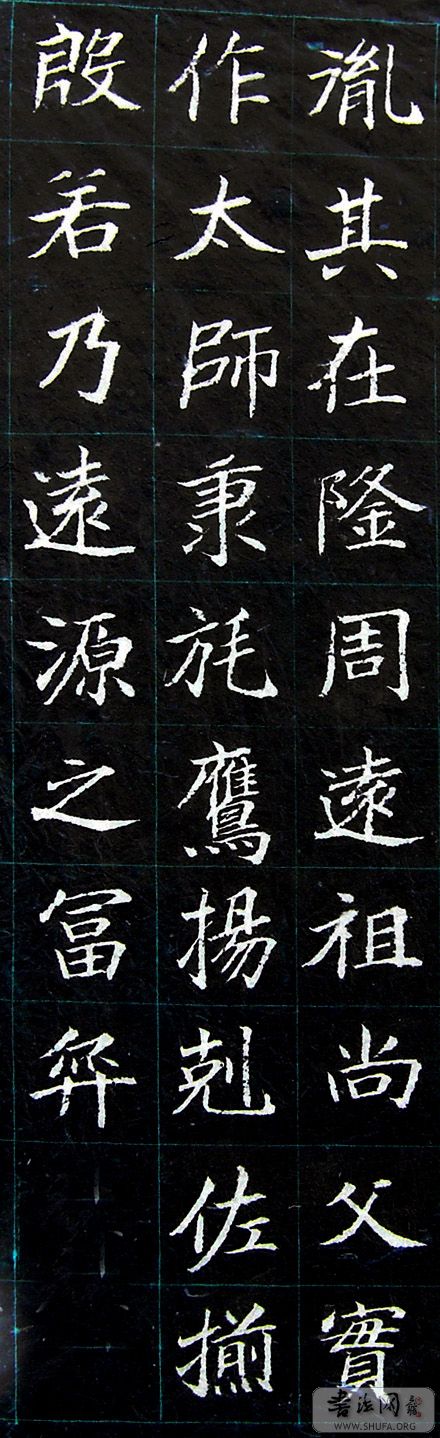 胤其在隆周遠祖尚父實
作太師秉旄鷹揚剋佐揃
殷若乃遠源之冨弈
書法网
WWW.SHUFA.ORG